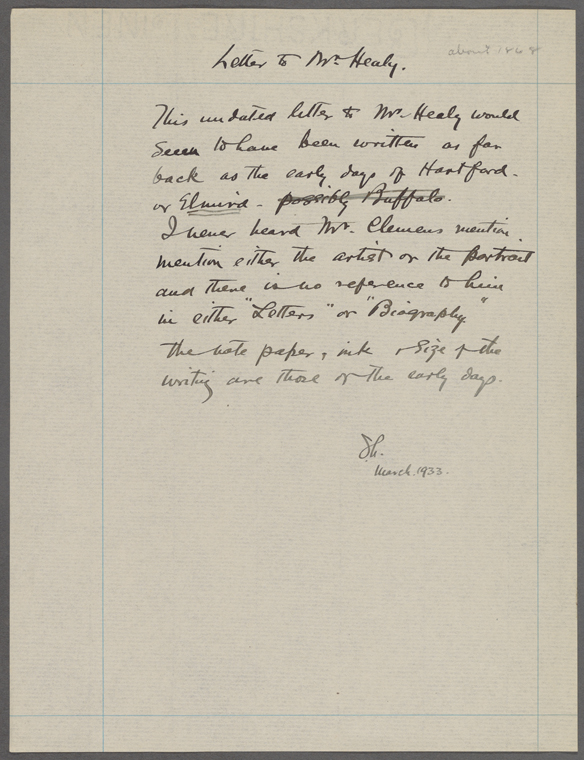 about 1868
Letter to Mr. Healy.
This undated letter to Mr. Healy would
seem to have been written as far
back as the early days of Hartford -
or Elmira - possibly Buffalo.
I never heard Mr. Clemens mention
mention either the artist or the portrait
and there is no reference to him
in either "Letters" or "Biography"
The note paper, ink & size of the
writing are those of the early days.
March. 1933.